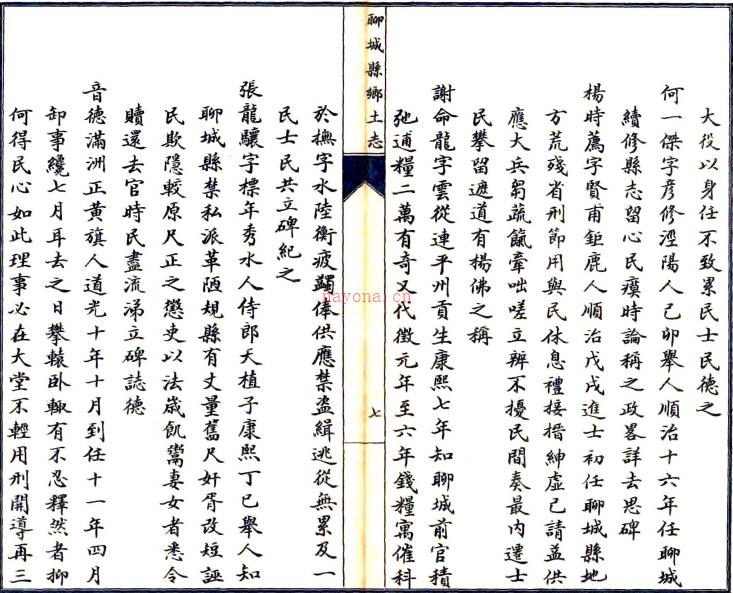 大役以身任不致累民士民德之
何一傑字彥修涇陽人己卯舉人順治十六年任聊城
續修縣志留心民瘼時論稱之政畧詳去思碑
楊時薦字賢甫鉅鹿人順治戊戌進士初任聊城縣地
方荒殘省刑節用與民休息禮接搢紳虛己請益供
應大兵芻蔬餼牽咄嗟立辨不擾民間奏最內遷士
民攀留遮道有楊佛之稱
謝命龍字雲從連平州貢生康熙七年知聊城前官積
弛逋糧二萬有奇又代徵元年至六年錢糧寓催科
聊城縣鄉土志
七
於撫字水陸衝疲蠲俸供應禁盜緝逃從無累及一
民士民共立碑紀之
張龍驤字標年秀水人侍郎天植子康熙丁巳舉人知
聊城縣禁私派革陋規縣有丈量舊尺奸胥改短誣
民欺隱較原尺正之懲吏以法歲飢鬻妻女者悉令
贖還去官時民盡流涕立碑誌德
音德滿洲正黃旗人道光十年十月到任十一年四月
卸事纔七月耳去之日攀轅臥轍有不忍釋然者抑
何得民心如此理事必在大堂不輕用刑開導再三
nayona.cn